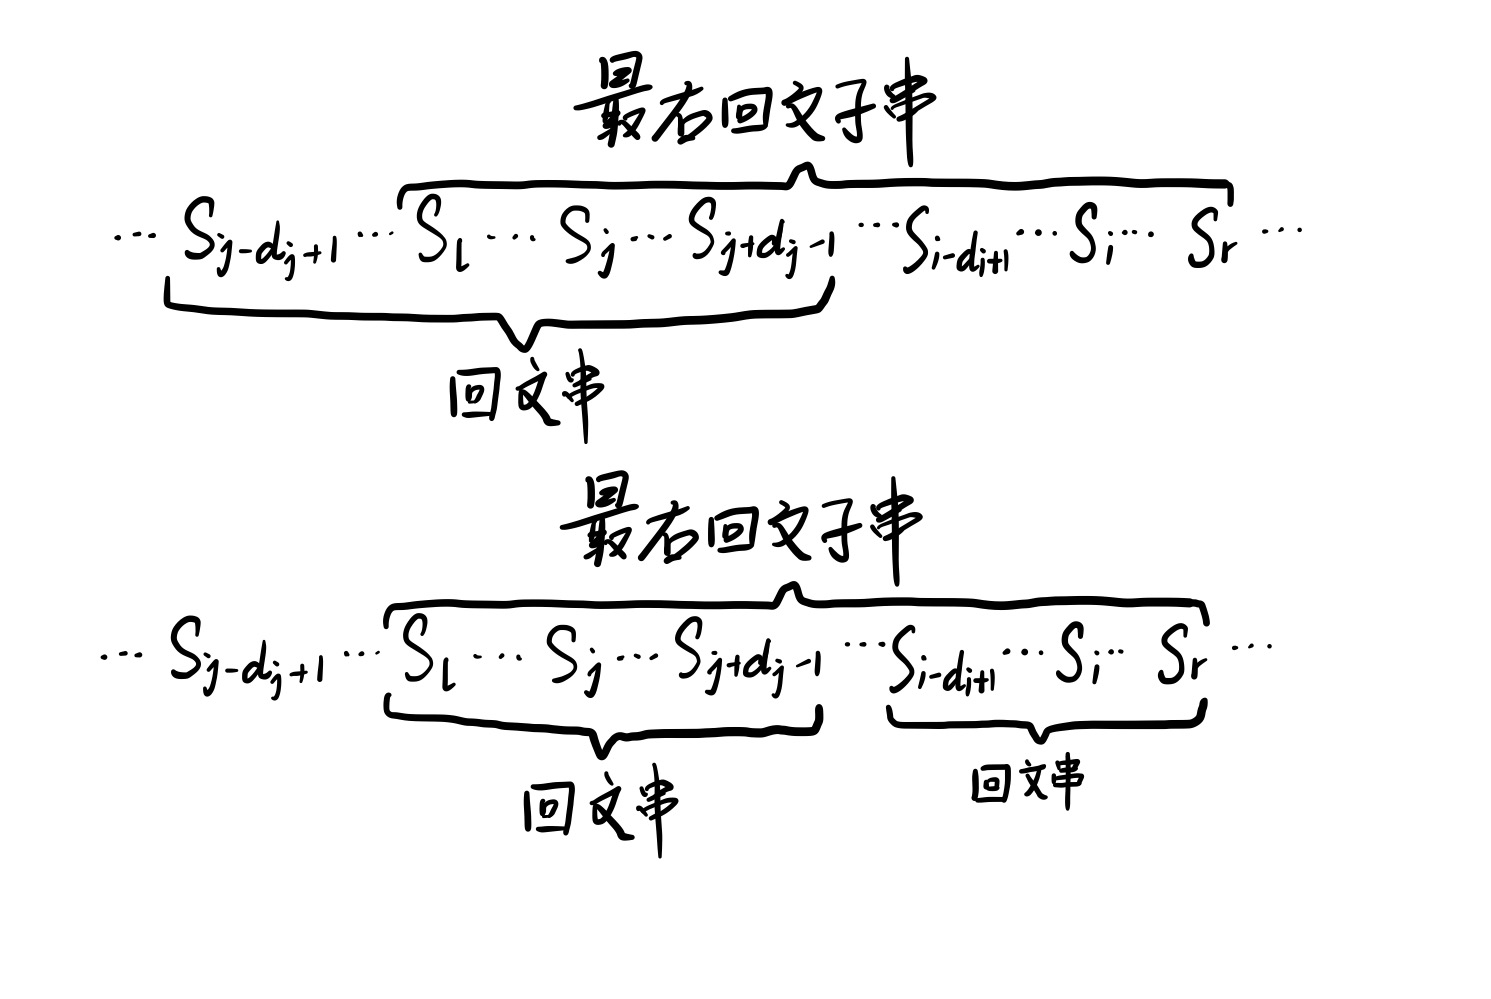 最右回文子串
... S_{j-d_j+1} ... S_l ... S_j ... S_{j+d_j-1} ... S_{i-d_i+1} ... S_i ... S_r ...
回文串
最右回文子串
... S_{j-d_j+1} ... S_l ... S_j ... S_{j+d_j-1} ... S_{i-d_i+1} ... S_i ... S_r ...
回文串 回文串